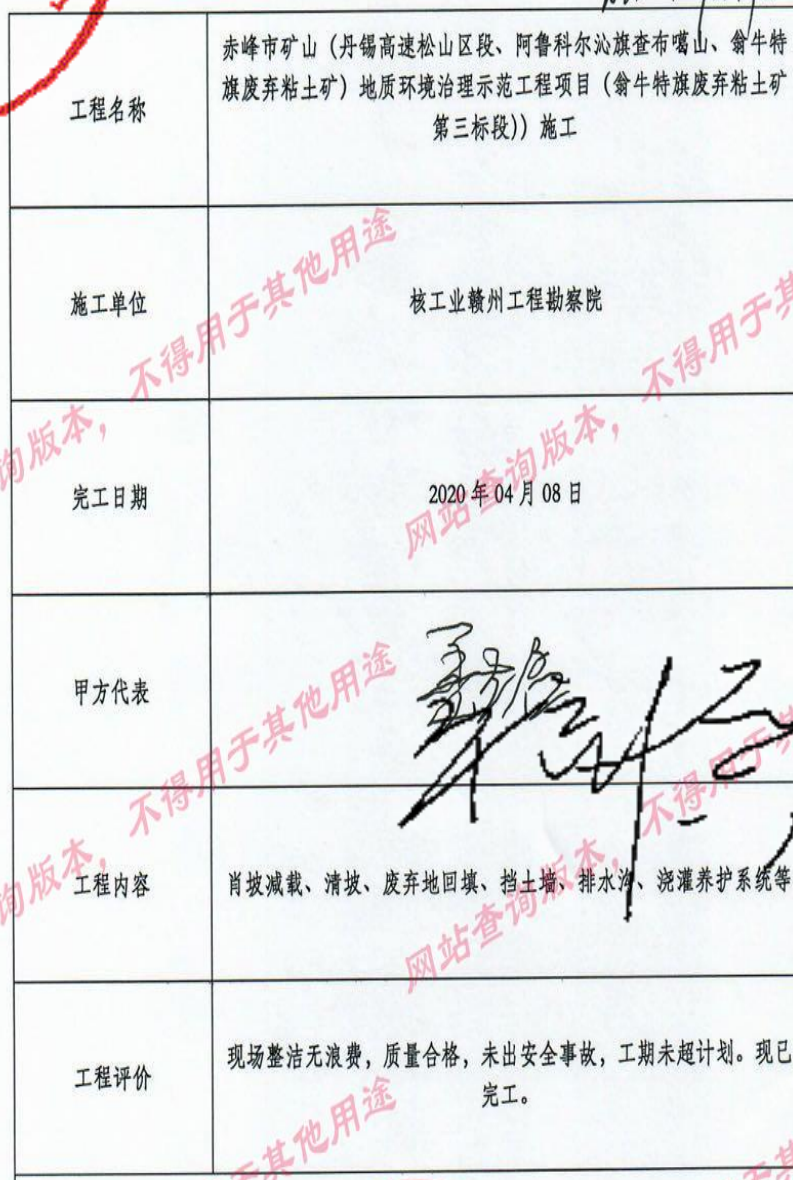 工程名称
赤峰市矿山（丹锡高速松山区段、阿鲁科尔沁旗查布嘎山、翁牛特
旗废弃粘土矿）地质环境治理示范工程项目（翁牛特旗废弃粘土矿
第三标段））施工
施工单位
核工业赣州工程勘察院
完工日期
2020年04月08日
甲方代表
工程内容
肖坡减载、清坡、废弃地回填、挡土墙、排水沟、浇灌养护系统等
工程评价
现场整洁无浪费，质量合格，未出安全事故，工期未超计划。现已
完工。
不得用于其他用途
不得用于其
询版本，
网站查询版本，
不得用于其他用途
不得用于其
询版本，
网站查询版本，
于其他用途